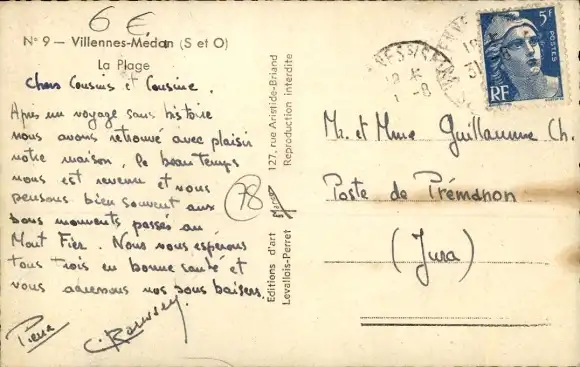 6€
N° 9 — Villennes-Médan (S et O)
La Plage
Chers Cousins et Cousine.
Après un voyage sans histoire
nous avons retrouvé avec plaisir
notre maison, le beau temps
nous est revenu et nous
pensons bien souvent aux
bons moments passés au
Mont Fier. Nous vous espérons
tous trois en bonne santé et
vous adressons nos bons baisers.
Pierre
78
Editions d'art
Levallois-Perret
127, rue Aristide-Briand
Reproduction interdite
5F
POSTES
RF
Mr. et Mme Guillaume Ch.
Poste de Prémanon
(Jura)